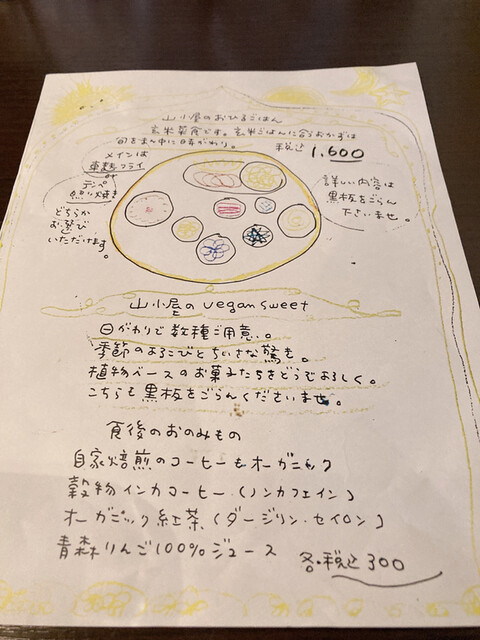 山小屋のおひるごはん
玄米菜食です。玄米ごはんに合うおかずは
旬をまん中に日替がわり。
税込 1,600
メインは
車麩フライ
or
テンペ
照り焼き
どちらか
お選び
いただけます。
詳しい内容は
黒板をごらん
下さいませ。
山小屋のvegan sweet
日がわりで数種ご用意。
季節のよろこびとちいさな驚を。
植物ベースのお菓みたちをどうぞよろしく。
こちらも黒板をごらんくださいませ。
食後のおのみもの
自家焙煎のコーヒーもオーガニック
穀物インカコーヒー(ノンカフェイン)
オーガニック紅茶(ダージリン・セイロン)
青森りんご100%ジュース
各・税込300